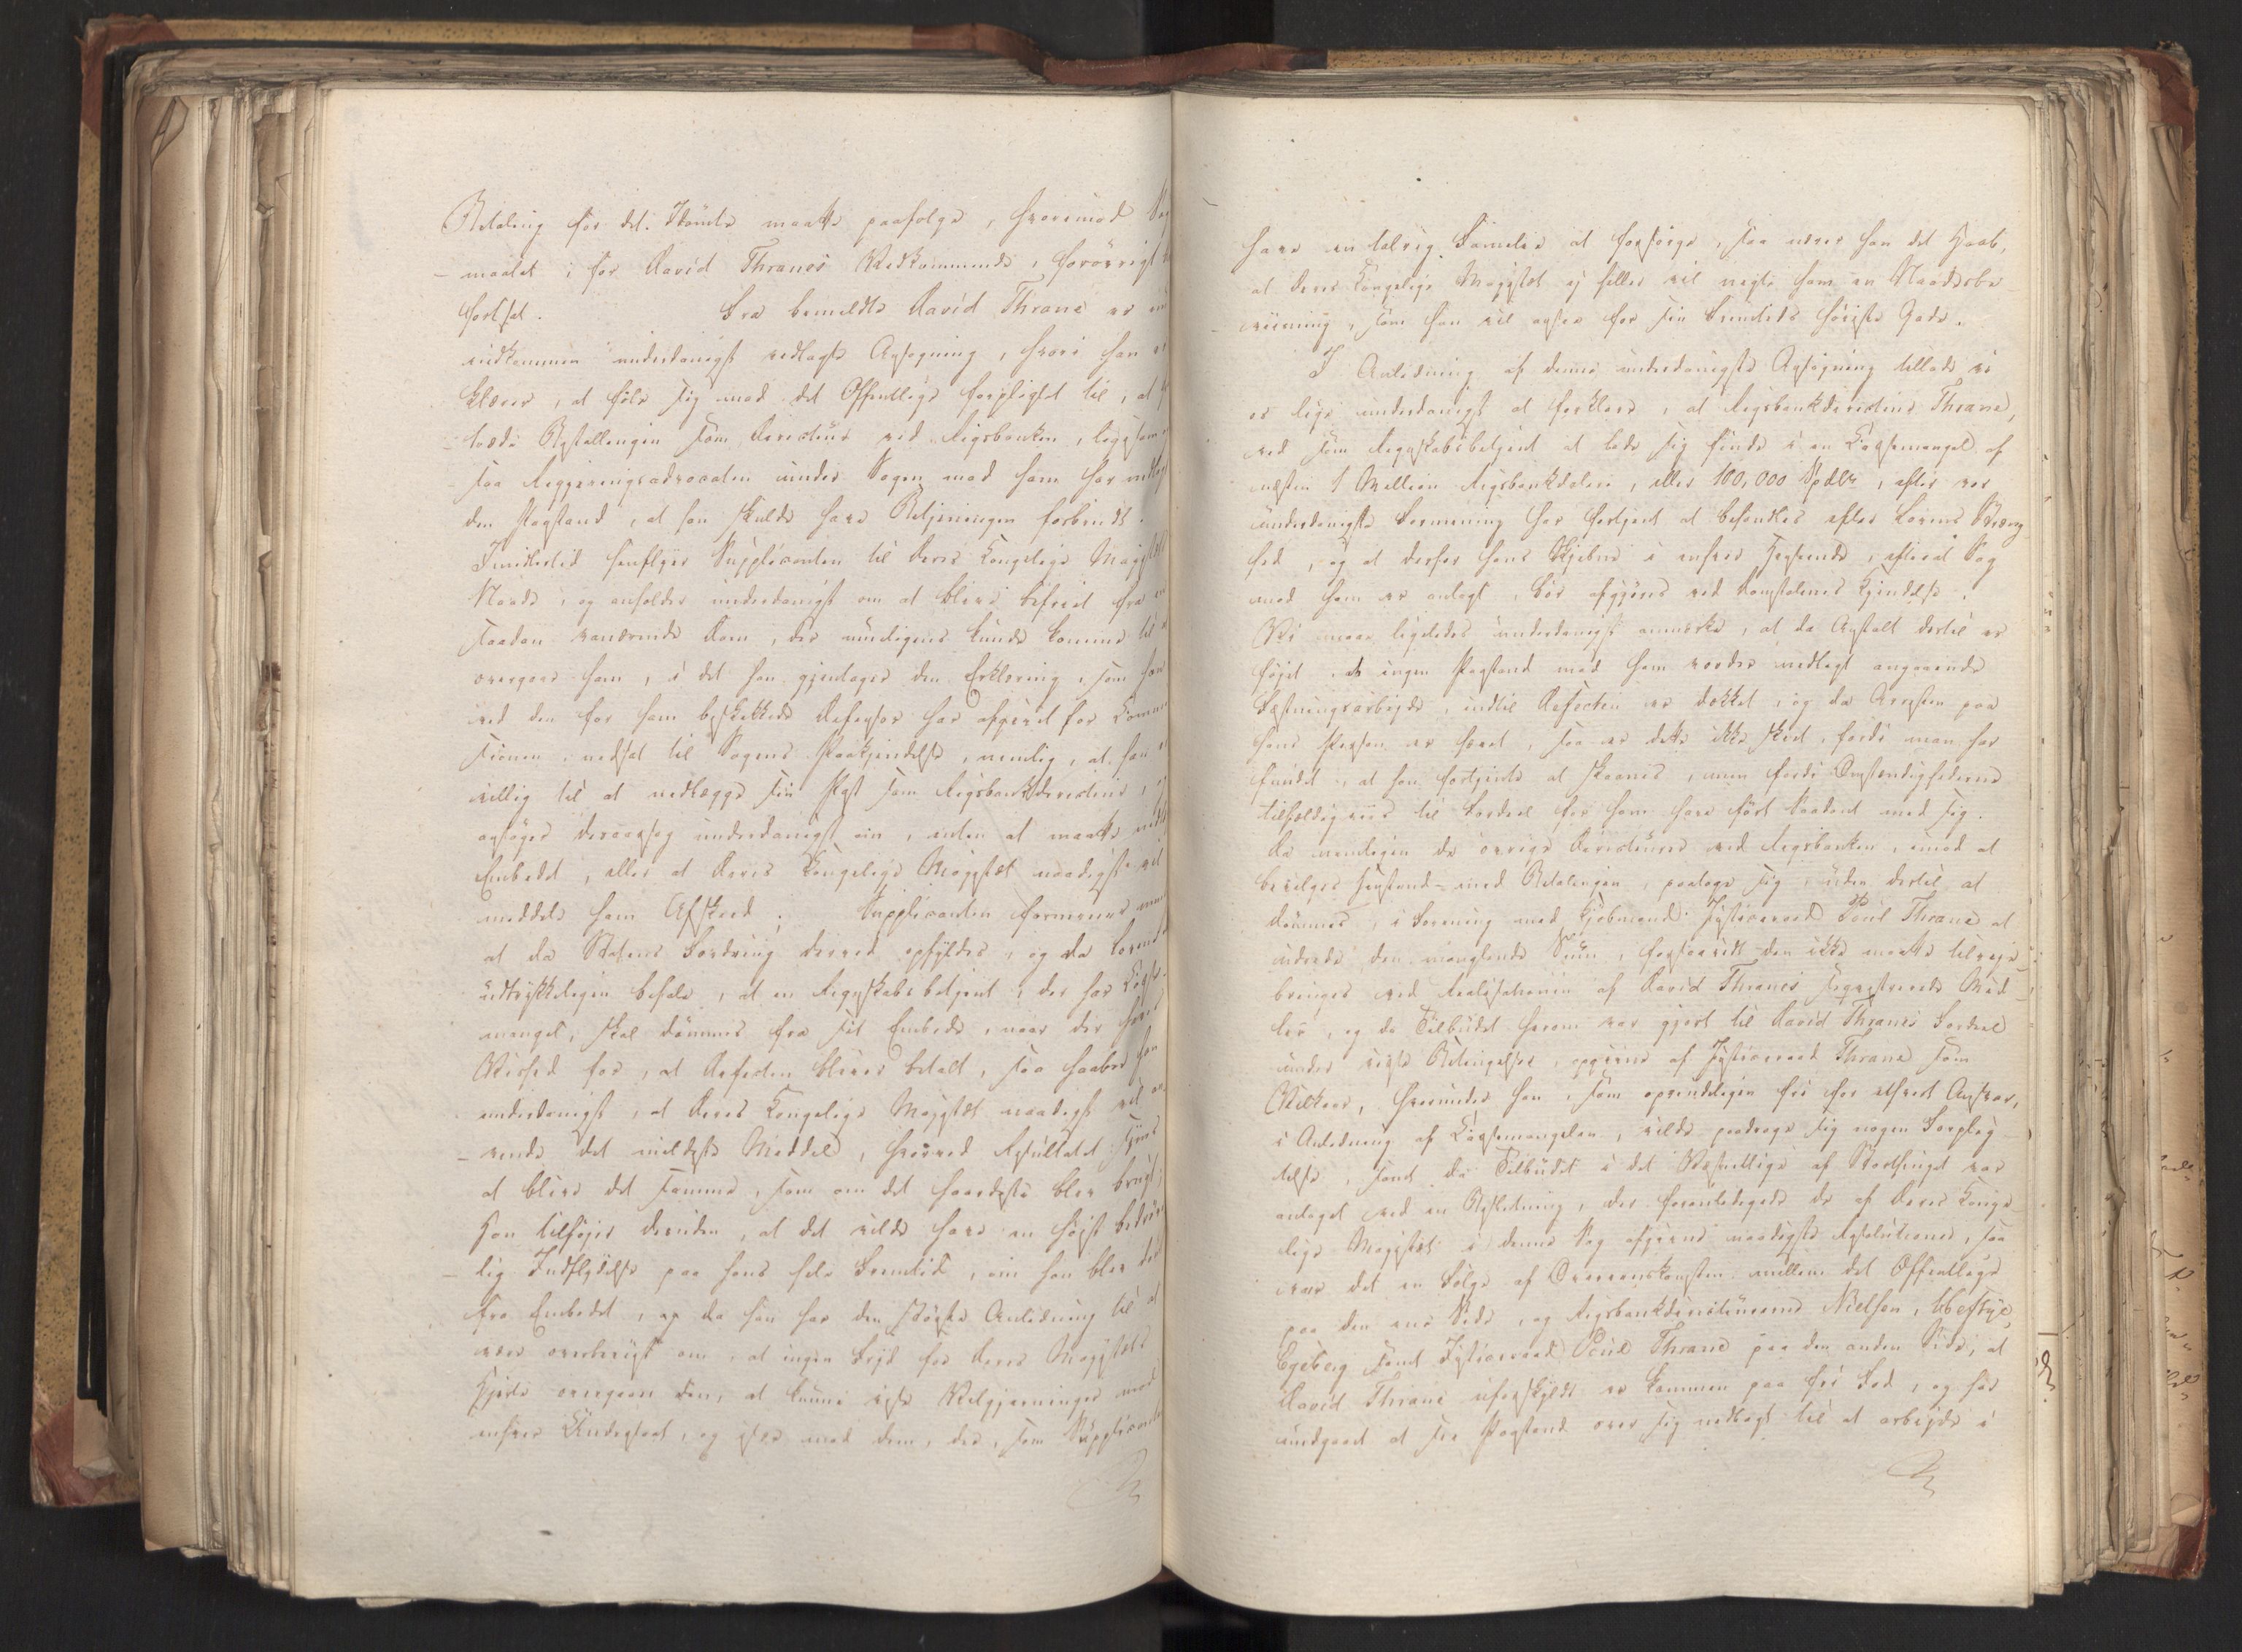 Betaling for det Idömte maatte paafolge, hvorimod
maalet i for David Thranes Vedkommende, forövrigt
fortsat. Fra bemeldte David Thrane er
indkommen underdanigst vedlagte Ansögning, hvori han
klærer, at föle sig mod det Offentlige forpligtet til, at
træde Bestillingen som Directeur ved Rigsbanken, ligesom
saa Regjeringsadvocaten under Sagen mod ham har nedlagt
den Paastand, at han skulde have Betjeningen forbrudt.
Imidlertid henflyer Supplicanten til Deres Kongelige Majestæts
Naade, og anholder underdanigst om at blive befriet fra en
saadan vanærende Dom, der muligens kunde komme til at
overgaae ham, i det han gjentager den Erklæring, som han
ved den for ham beskikkede Defensor har afgivet for Commis
sionen nedsat til Sagens Paakjendelse, nemlig, at han er
villig til at nedlægge sin Post som Rigsbankdirecteur, og
ansöger derover underdanigst om, enten at maatte nedlægge
Embedet, eller at Deres Kongelige Majestæt naadigst vil
meddele ham Afskeed. Supplicanten formener
at da Statens Fordring derved opfyldes, og da Lovene
udtrykkeligen befale, at en Regnskabsbetjent, der har Casse-
mangel, skal dömmes fra sit Embede, naar der haves
Vished for, at Defecten bliver betalt, saa haaber han
underdanigst, at Deres Kongelige Majestæt naadigst vil an-
vende det mildeste Middel, hvorved Resultatet synes
at blive det samme, som om det haardeste blev brugt;
Han tilföjer desuden, at det vilde have en höjst bedröve
lig Indflydelse paa hans hele Fremtid, om han blev dömt
fra Embedet, og da han har den störste Anledning til at
være overbeviist om, at ingen Fryd for Deres Majestæts
Hjerte overgaaer den, at kunne viise Velgjerninger mod
enhver Undersaat, og især mod dem, der, som Supplicanten
have en talrig Familie at forsörge, saa nærer han det Haab,
at Deres Kongelige Majestæt ej heller vil negte ham en Naadesbe
viisning, som han vil ansee for sin Fremtids höieste Gode.
I Anledning af denne underdanigste Ansögning tillade vi
os lige underdanigst at forklare, at Rigsbankdirecteur Thrane,
ved som Regnskabsbetjent at lade sig finde i en Cassemangel af
næsten 1 Million Rigsbankdaler, eller 100,000 Spdlr, efter vor
underdanigste Formening har fortjent at behandles efter Lovens Stræng
hed, og at derfor hans Skjebne i enhver Henseende, efterat Sag
mod ham er anlagt, bör afgjöres ved Domstolenes Kjendelse.
Vi maae ligeledes underdanigst anmærke, at da Anstalt dertil er
föjet, at ingen Paastand mod ham vorder nedlagt angaaende
Fæstningsarbejde, indtil Defecten er dækket, og da Arresten paa
hans Person er hævet, saa er dette ikke skeet, fordi man har
fundet, at han fortjente at skaanes, men fordi Omstændighederne
tilfældigviis til Fordeel for ham have fört Saadant med sig.
Da nemligen de övrige Directeurer ved Rigsbanken, imod at
bevilges Henstand med Betalingen, paatoge sig, uden dertil at
dömmes, i Forening med Kjöbmand Justiceraad Poul Thrane at
udrede den manglende Sum, forsaavidt den ikke maatte tilveje
bringes ved Realisationen af David Thranes sequestrerede Mid
ler, og da Tilbudet herom var gjort til David Thranes Fordeel
under visse Betingelser, opgivne af Justiceraad Thrane som
Vilkaar, hvorunder han, som oprindeligen fri for ethvert Ansvar,
i Anledning af Cassemangelen, vilde paadrage sig nogen Forplig
telse, samt da Tilbudet i det Væsentlige af Storthinget var
antaget ved en Beslutning, der foranledigede de af Deres Konge
lige Majestæt i denne Sag afgivne naadigste Resolutioner, saa
var det en Fölge af Overeenskomsten mellem det Offentlige
paa den ene Side, og Rigsbankdirecteurerne Nielsen,
Egeberg samt Justiceraad Poul Thrane paa den anden Side, at
David Thrane uforskyldt er kommen paa fri Fod, og har
undgaaet at see Paastand over sig nedlagt til at arbejde i